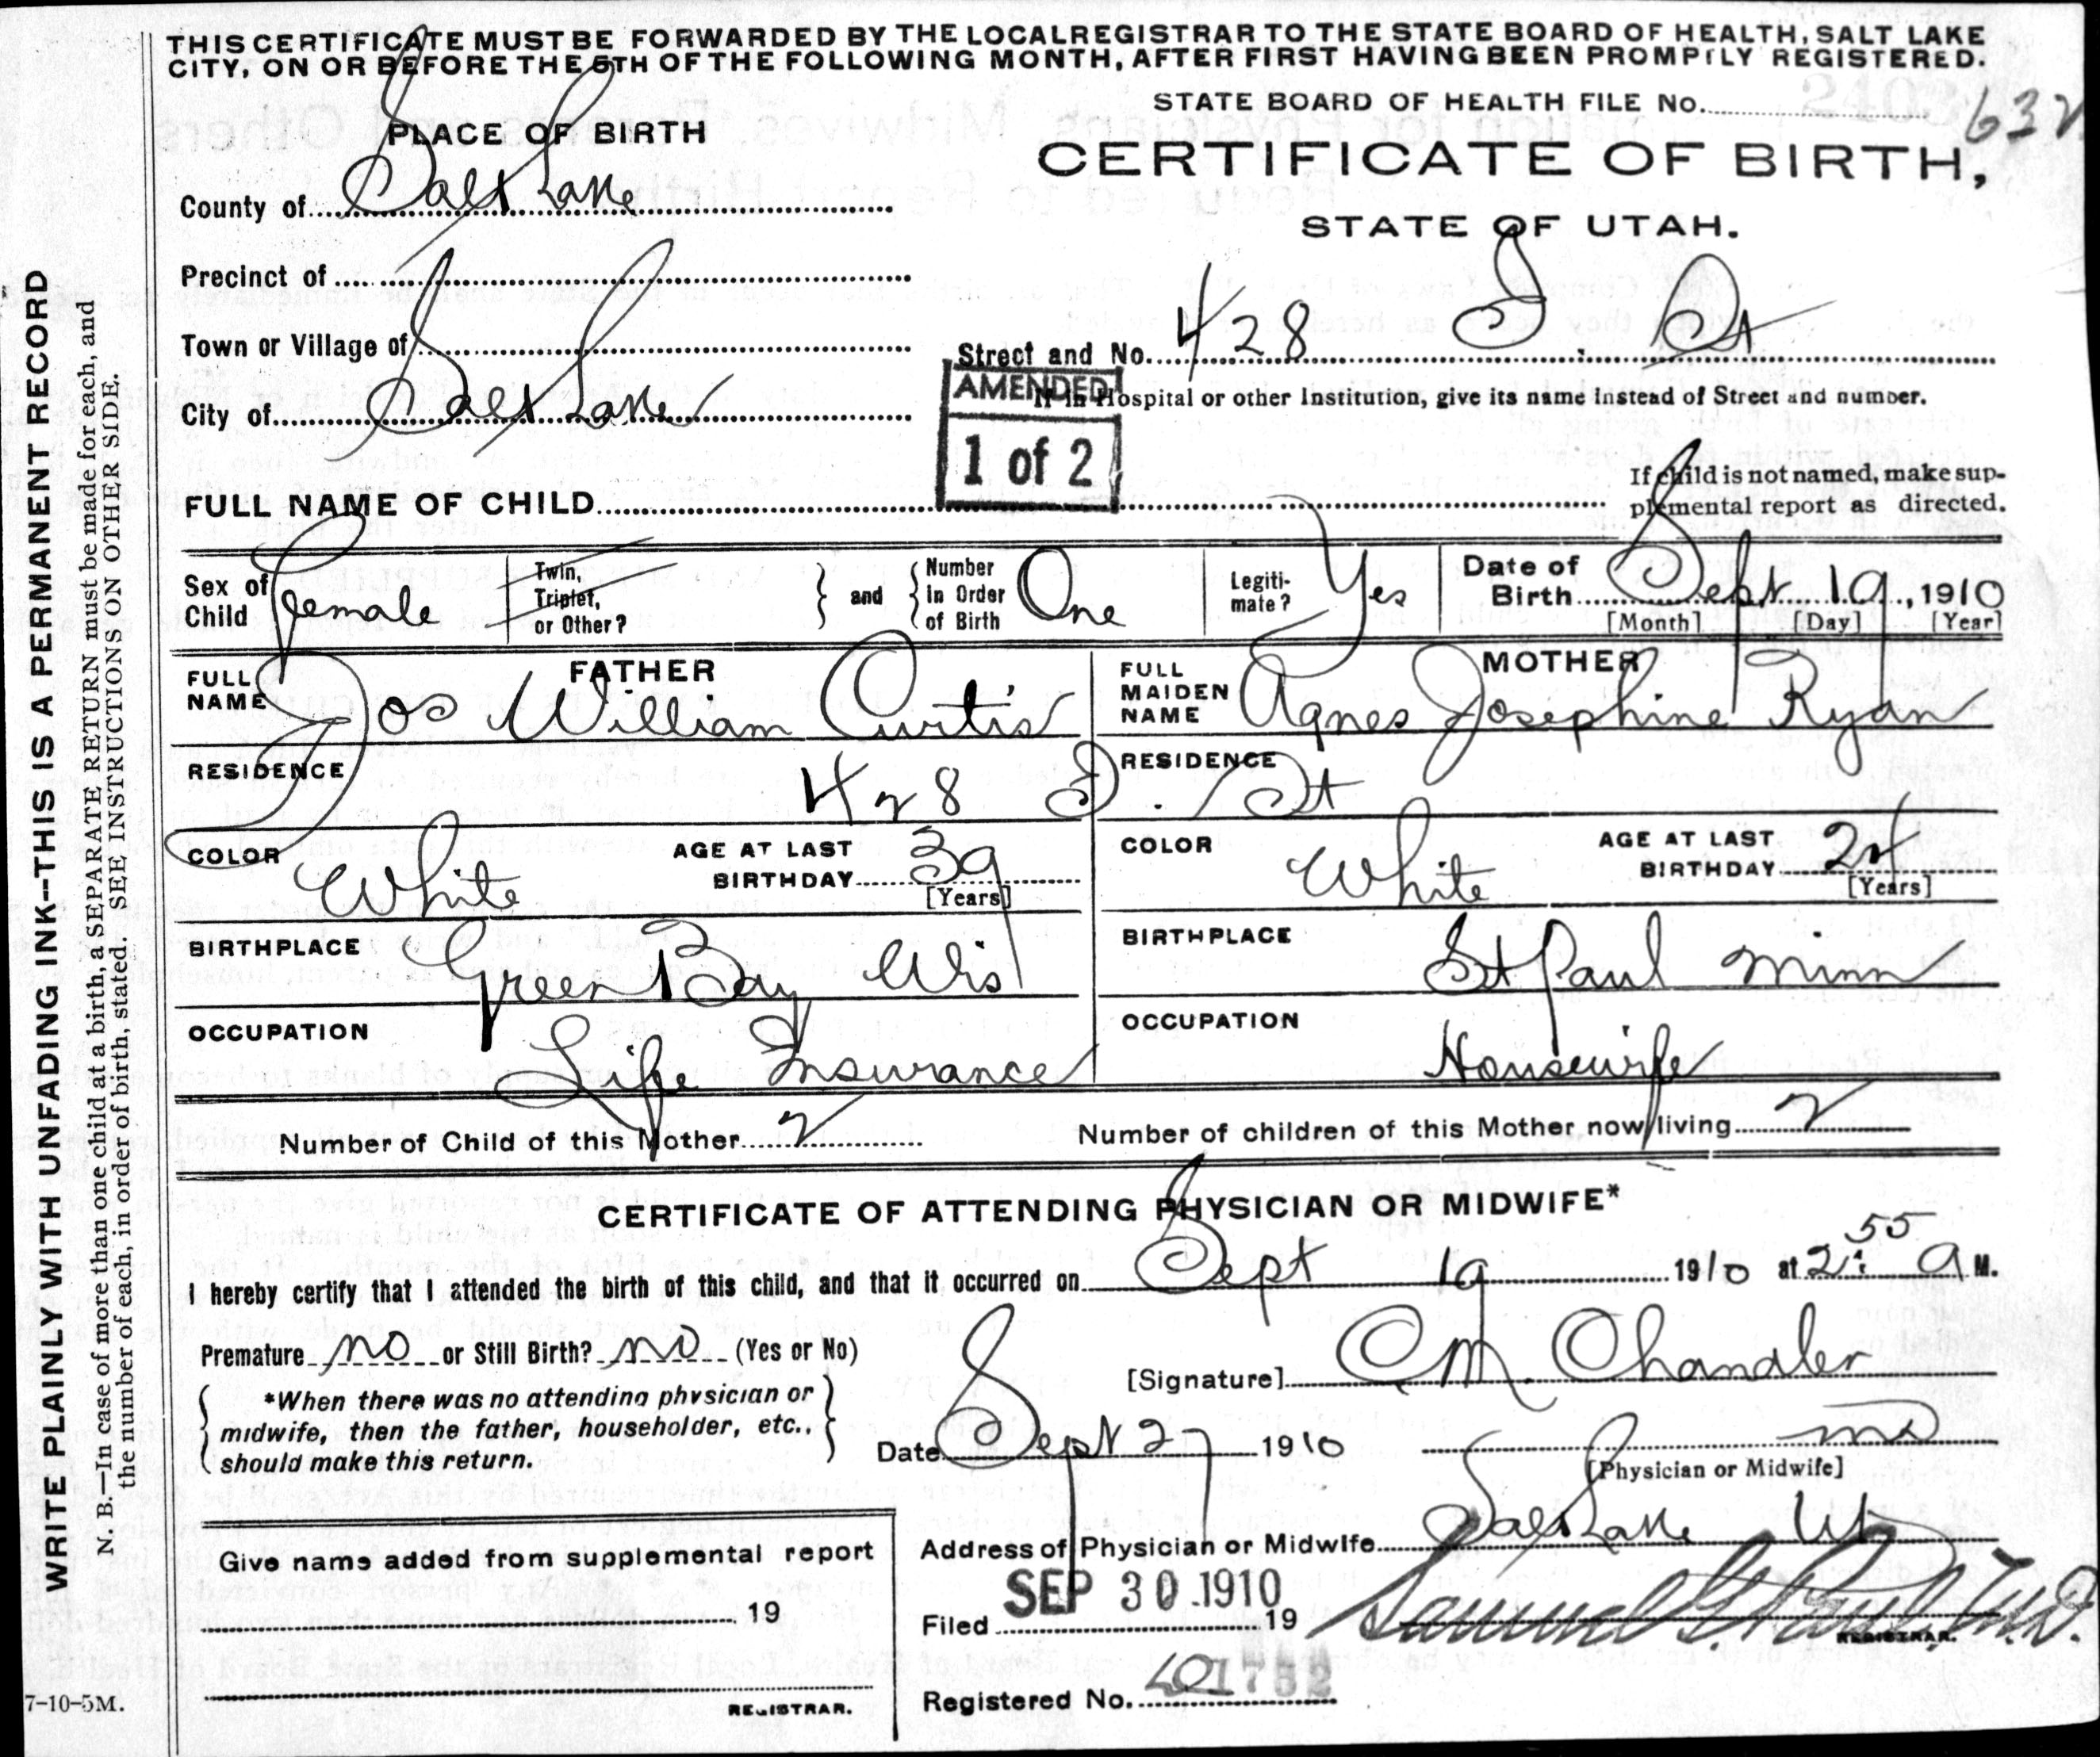 THIS CERTIFICATE MUST BE FORWARDED BY THE LOCAL REGISTRAR TO THE STATE BOARD OF HEALTH, SALT LAKE
CITY, ON OR BEFORE THE 5TH OF THE FOLLOWING MONTH, AFTER FIRST HAVING BEEN PROMPTLY REGISTERED.
STATE BOARD OF HEALTH FILE No.
632
PLACE OF BIRTH
CERTIFICATE OF BIRTH,
STATE OF UTAH.
County of Salt Lake
Precinct of
Town or Village of
Street and No. 428 St
AMENDED
1 of 2
If in Hospital or other Institution, give its name instead of Street and number.
City of Salt Lake
FULL NAME OF CHILD
If child is not named, make sup-
plemental report as directed.
Sex of Child Female
Twin, Triplet, or Other?
and
Number in Order of Birth One
Legiti-mate? Yes
Date of Birth Sept 19, 1910
[Month] [Day] [Year]
FATHER
FULL NAME Jos William Curtis
MOTHER
FULL MAIDEN NAME Agnes Josephine Ryan
RESIDENCE 428
RESIDENCE St
COLOR White
AGE AT LAST BIRTHDAY 39
[Years]
COLOR White
AGE AT LAST BIRTHDAY 24
[Years]
BIRTHPLACE Green Bay Wis
BIRTHPLACE St Paul Minn
OCCUPATION Life Insurance
OCCUPATION Housewife
Number of Child of this Mother 2
Number of children of this Mother now living 2
CERTIFICATE OF ATTENDING PHYSICIAN OR MIDWIFE*
I hereby certify that I attended the birth of this child, and that it occurred on Sept 19 1910 at 2:55 A M.
Premature no or Still Birth? no (Yes or No)
[Signature] C M. Chandler
*When there was no attending physician or
midwife, then the father, householder, etc.,
should make this return.
Date Sept 27 1910
MD
[Physician or Midwife]
Give name added from supplemental report
19
REGISTRAR.
Address of Physician or Midwife Salt Lake Ut
Filed SEP 30 1910 19
Samuel G. Paul M.D.
REGISTRAR.
Registered No. 1752
7-10-5M.
WRITE PLAINLY WITH UNFADING INK—THIS IS A PERMANENT RECORD
N. B.—In case of more than one child at a birth, a SEPARATE RETURN must be made for each, and
the number of each, in order of birth, stated. SEE INSTRUCTIONS ON OTHER SIDE.